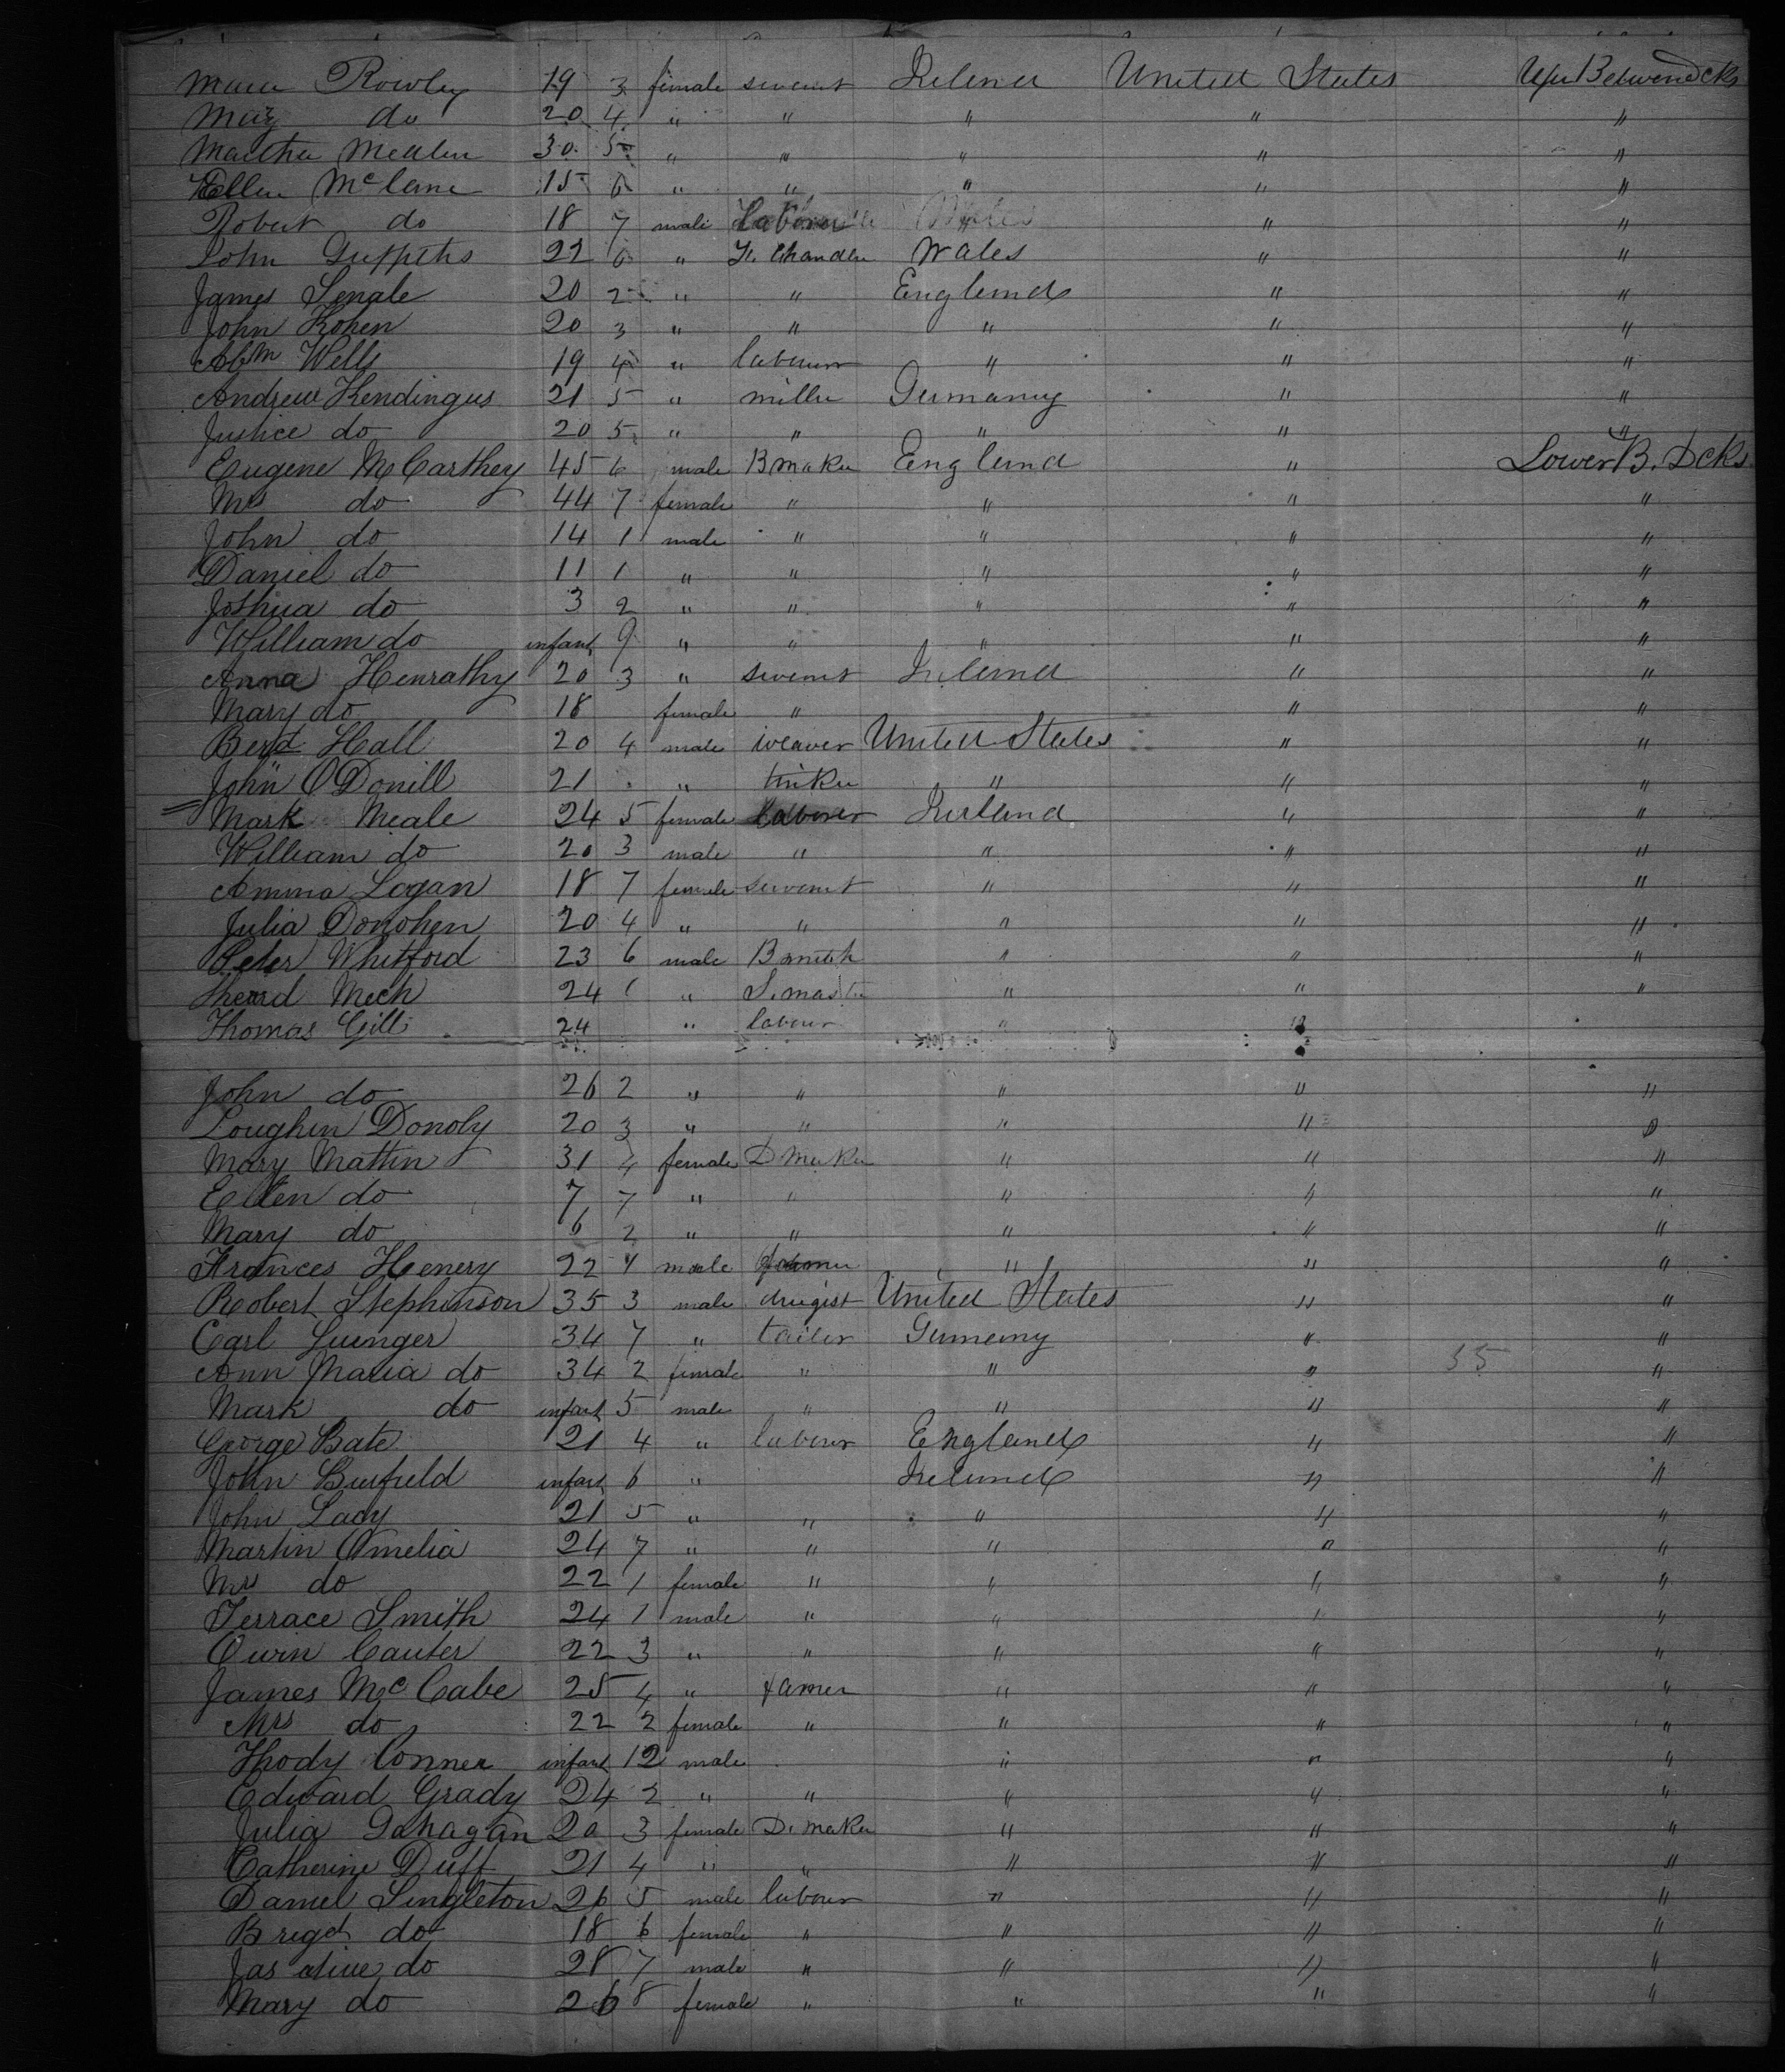 Rowley 19 3 female servent Irelend United States Uper Between Dcks
Mary do 20 4 " " " " "
Martha 30 5 " " " " "
Ellen McCann 15 6 " " " " "
Robert do 18 7 male labourer " " "
John Griffiths 22 6 " Chandler Wales " "
James Senale 20 2 " " England " "
John Kohen 20 3 " " " " "
Abm Wells 19 4 " labourer " " "
Andrew Kendingus 21 5 " miller Germany " "
Justice do 20 5 " " " " "
Eugene McCarthey 45 6 male B maker England " Lower B. Dcks
Mrs do 44 7 female " " " "
John do 14 1 male " " " "
Daniel do 11 1 " " " " "
Joshua do 3 2 " " " " "
William do infant 9 " " " " "
Anna Henrathy 20 3 " servent Irelend " "
Mary do 18 female " " "
Berd Hall 20 4 male weaver United States " "
John O Donill 21 " " " "
Mark Meale 24 5 female labourer Irelend " "
William do 20 3 male " " " "
Amma Logan 18 7 female servent " " "
Julia Donohen 20 4 " " " " "
Peter Whitford 23 6 male B smith " " "
Mech 24 " S. master " " "
Thomas Gill 24 " labour " "
John do 26 2 " " " " "
Loughin Donoly 20 3 " " " "
Mary Mattin 31 4 female D Maker " " "
Ellen do 7 7 " " " " "
Mary do 6 2 " " " " "
Frances Henery 22 male " " "
Robert Stephinson 35 3 male drugist United States " "
Carl Luinger 34 7 " tailer Germeny " "
Ann Maria do 34 2 female " " " 35 "
Mark do infant 5 male " " " "
George Bate 21 4 " labour England " "
John Burfield infant 6 " Irelend " "
John Lady 21 5 " " " " "
Martin Omelia 24 7 " " " " "
Mrs do 22 1 female " " " "
Terrace Smith 24 1 male " " " "
Owin Cauter 22 3 " " " " "
James McCabe 25 4 " farmer " " "
Mrs do 22 2 female " " " "
Thody Conner infant 12 male " " "
Edward Grady 24 2 " " " " "
Julia Gahagan 20 3 female D. maker " " "
Catherine Duff 21 4 " " " " "
Daniel Singleton 26 5 male labour " " "
Briget do 18 6 female " " " "
Jas do 28 7 male " " " "
Mary do 26 8 female " " " "